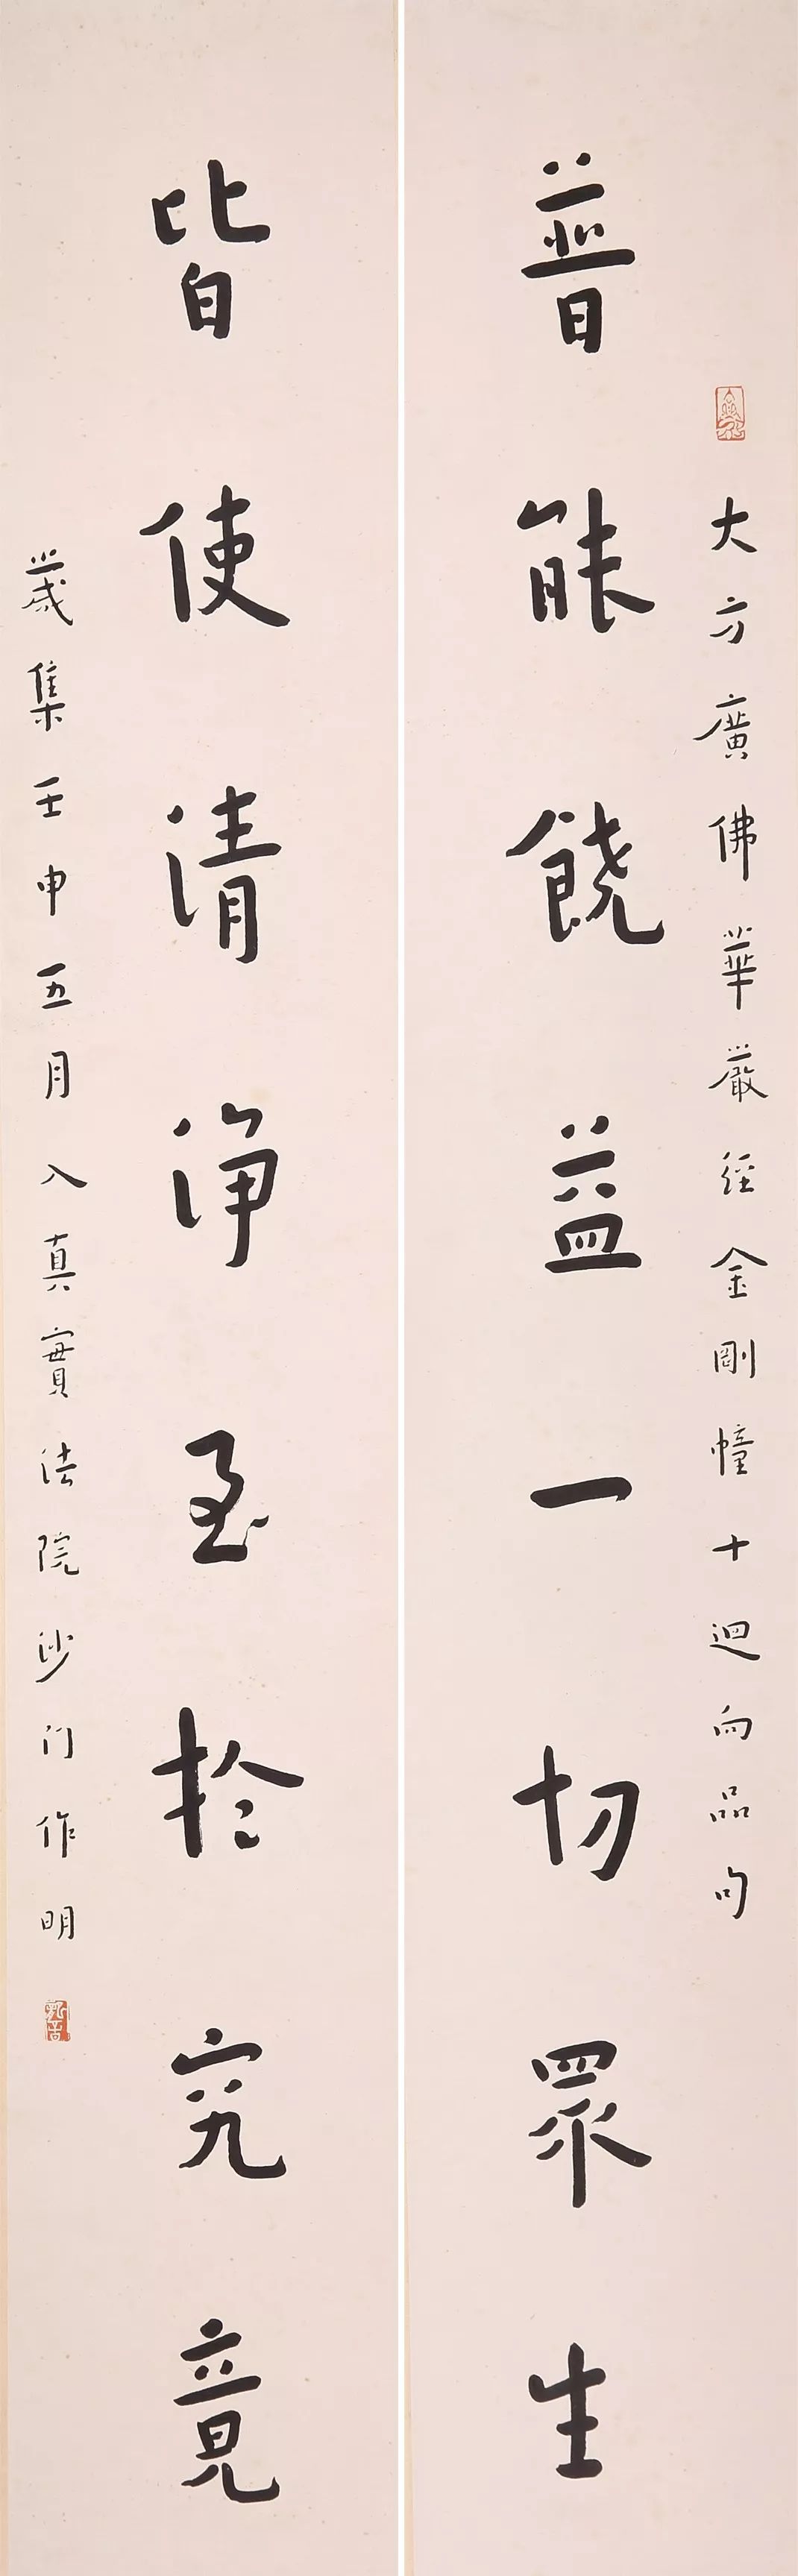 大方廣佛華嚴經金剛幢十迴向品句
普能饒益一切眾生
皆使清淨至於究竟
歲集壬申五月入真實法院沙门作明